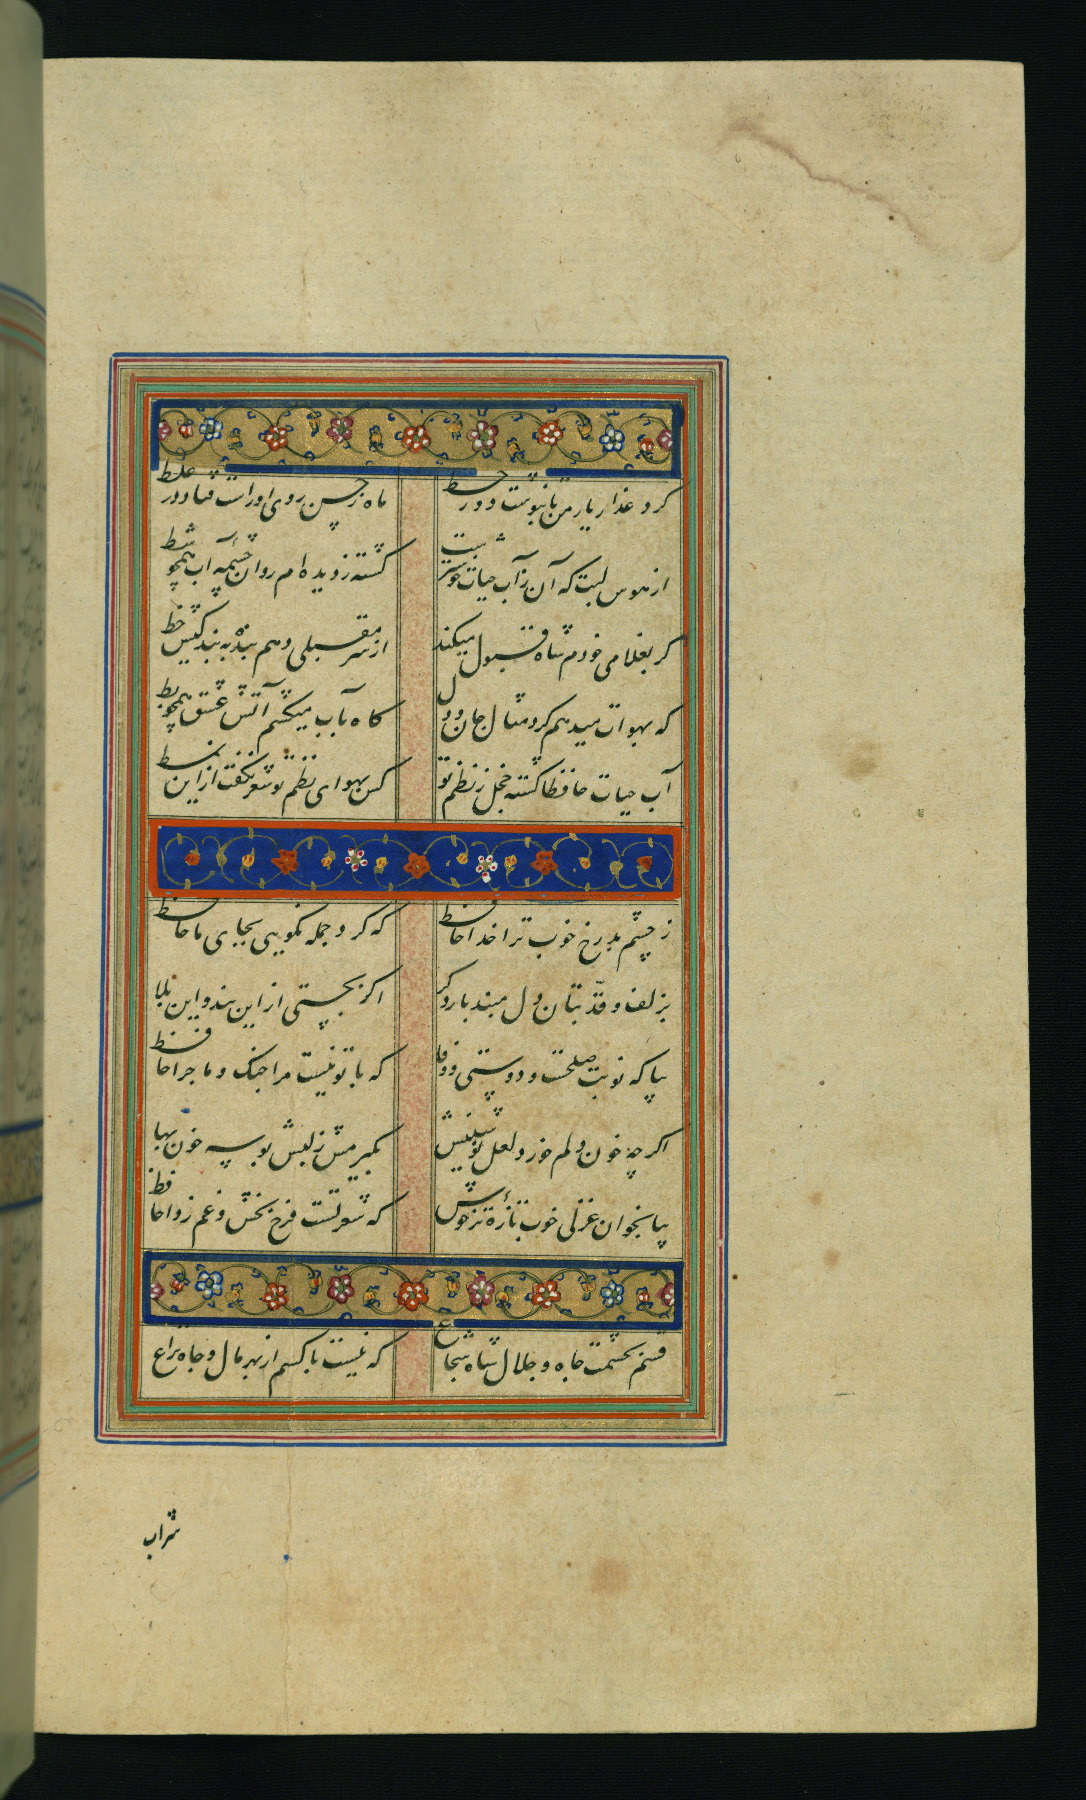 کرد عذار یار من تا بنوشت دور خط
ماه ز حسن روی او راست فتاد در غلط
از هوس لبت که آن ز آب حیات خوشترست
گشته ز دیده ام روان چشمه آب همچو شط
گر بغلامی خودم شاه قبول میکند
از سر مقبلی دهم بنده به بندگیش خط
که بهوات میدهم گرد مثال جان و دل
گاه بآب میکشم آتش عشق همچو بط
آب حیات حافظا گشته خجل ز نظم تو
کس بهوای نظم تو شعر نگفت ازین نمط
ز چشم بد رخ خوب ترا خدا حافظ
که کرد جمله نکویی بجای ما حافظ
بزلف و قد بتان دل مبند بار دگر
اگر بجستی ازین بند و این بلا
بیا که نوبت صلحست و دوستی و وفا
که با تو نیست مرا جنگ و ماجرا حافظ
اگر چه خون دلم خورد لعل نوشینش
بگیر مش ز لبش بوسه خون بها
بیا بخوان غزلی خوب تازه تر خوش
که شعر تست فرح بخش و غم زدا حافظ
قسم بحشمت جاه و جلال شاه شجاع
که نیست با کسم از بهر مال و جاه نزاع
شراب